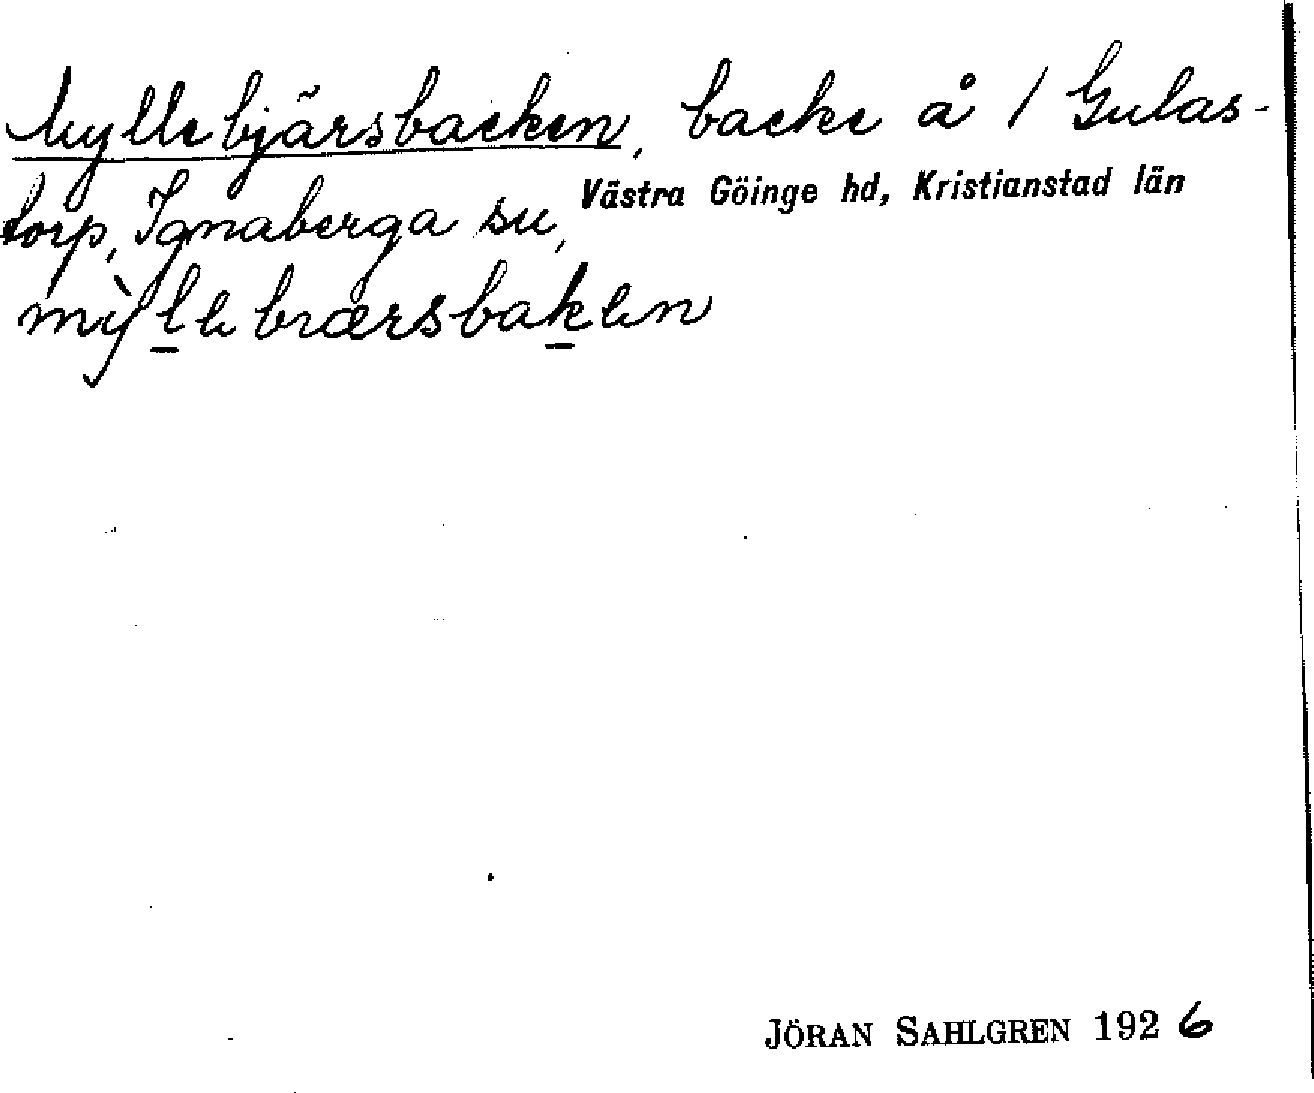 Myllebjärsbacken, backe å 1 Gulas-
torp, Ignaberga sn,
Västra Göinge hd, Kristianstad län
JÖRAN SAHLGREN 1926